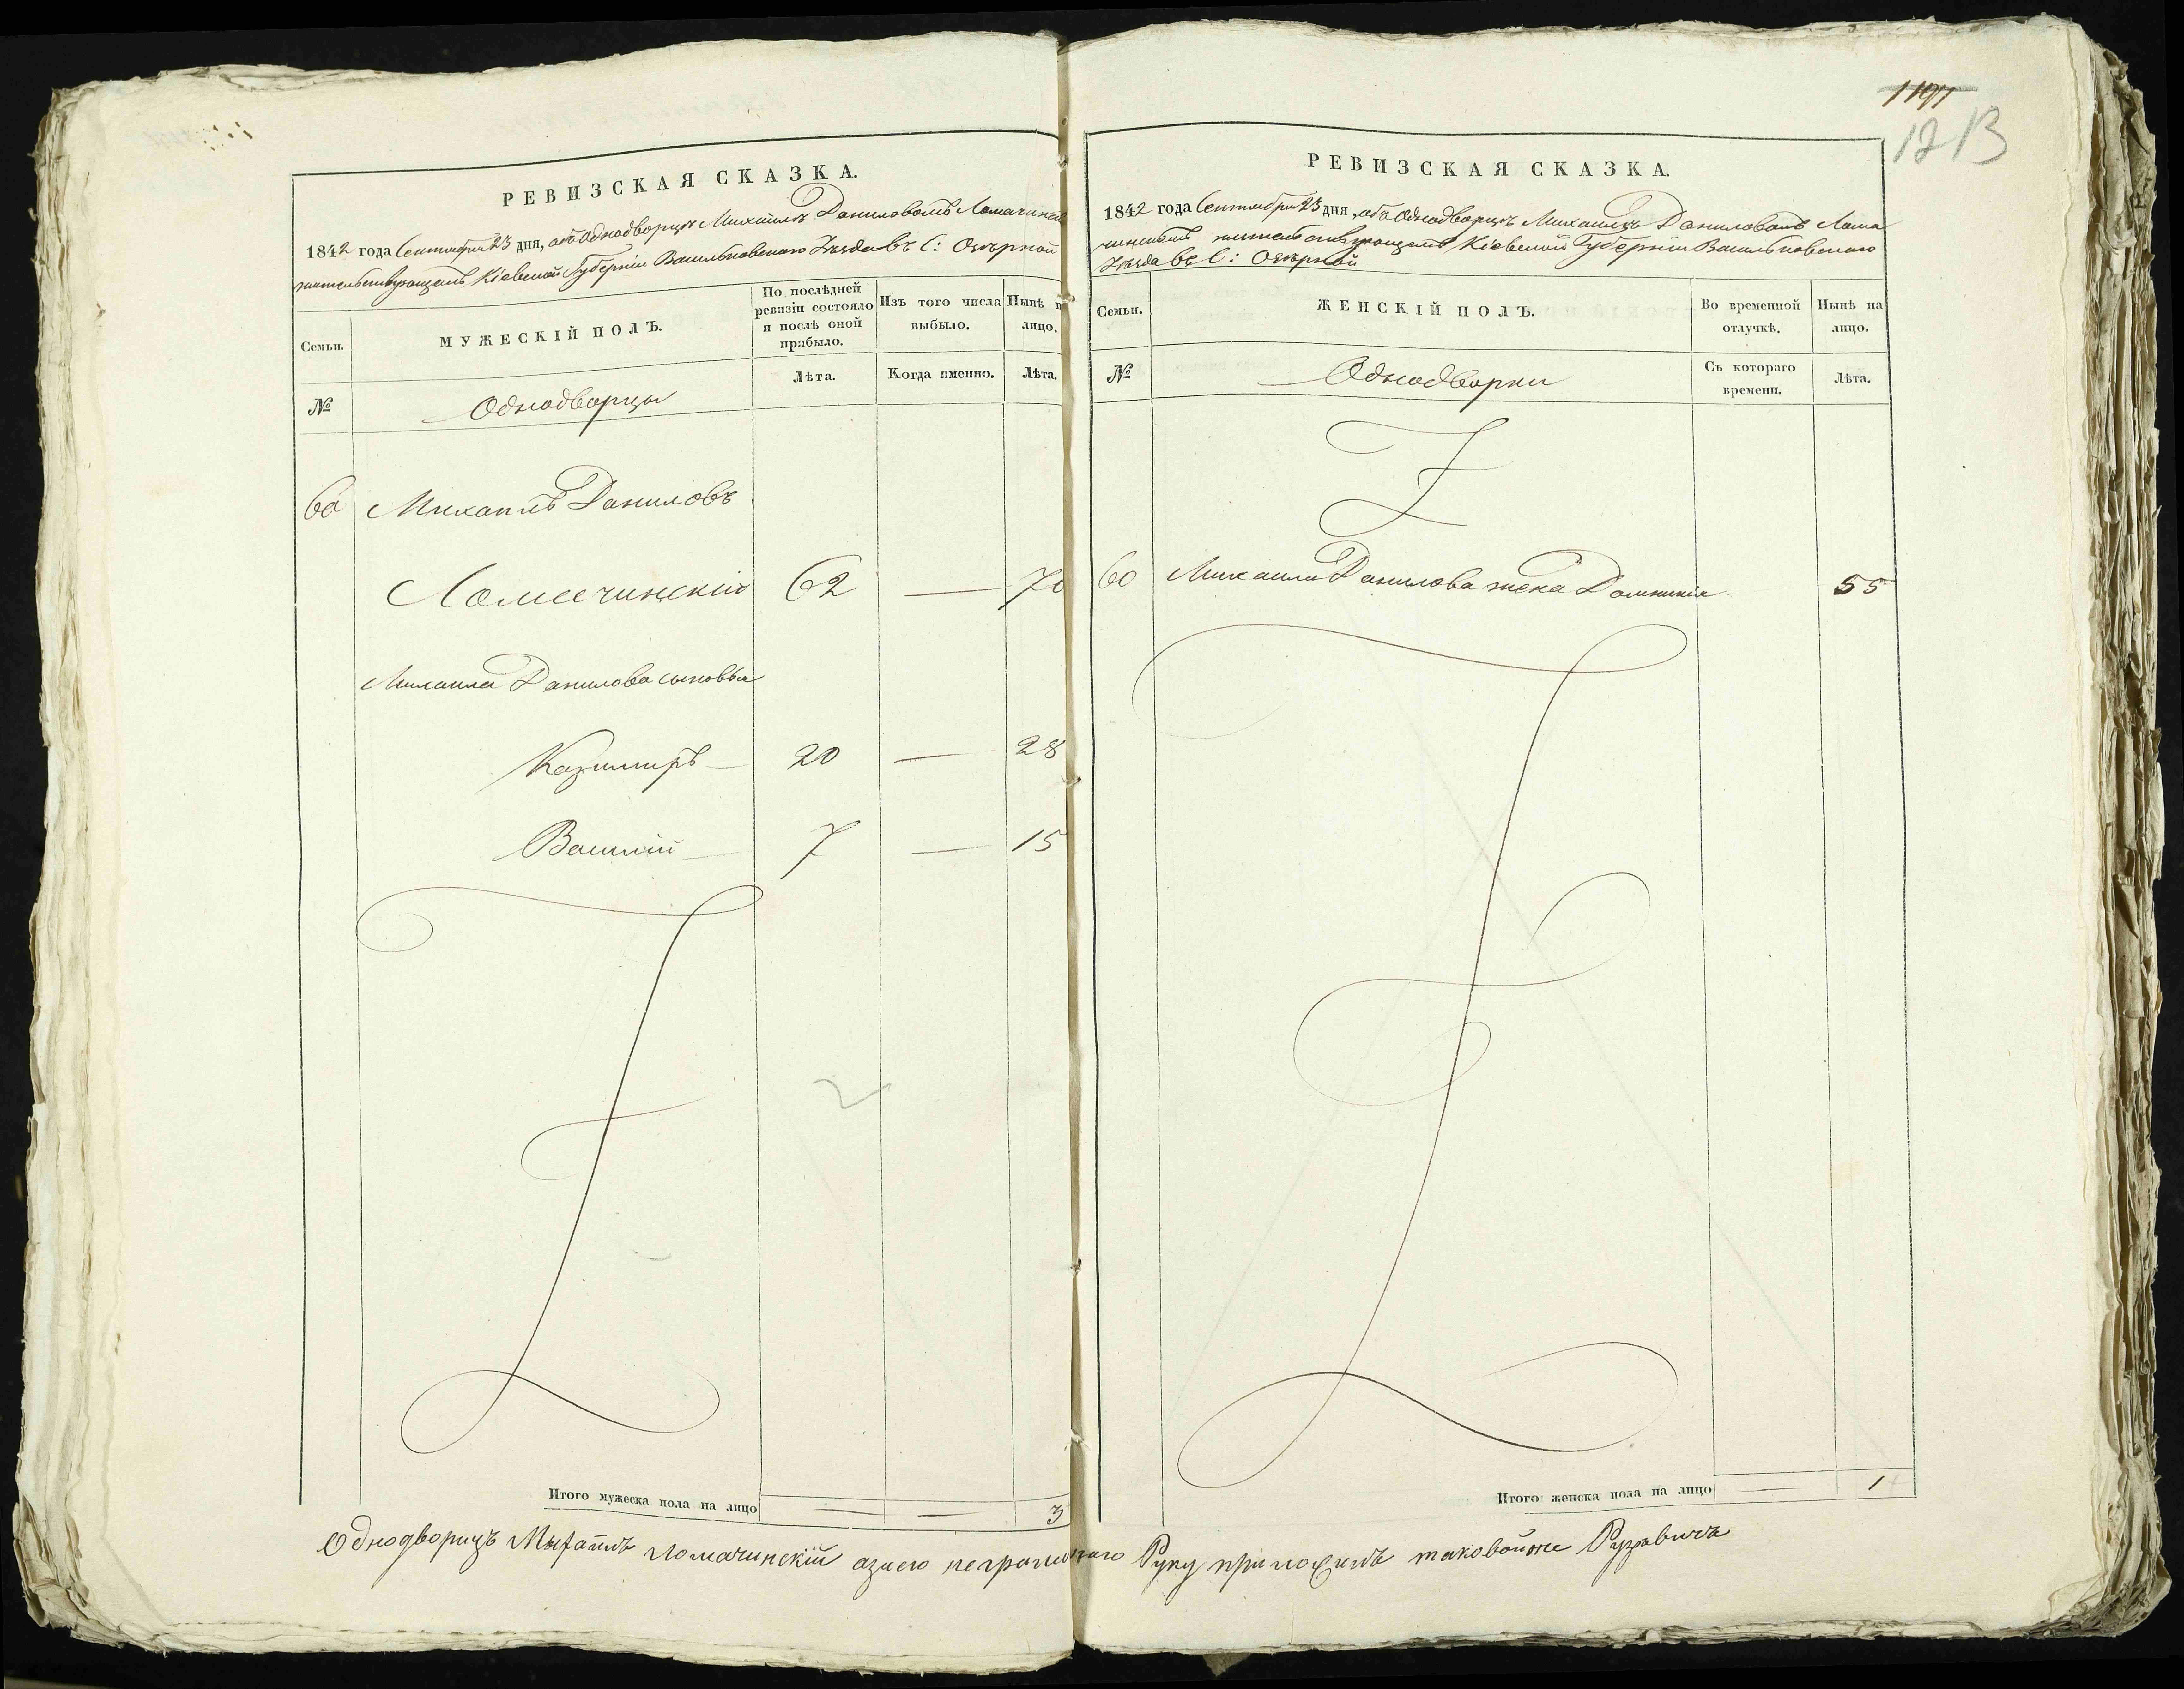 РЕВИЗСКАЯ СКАЗКА.
1842 года Сентября 23 дня, объ Однодворцѣ Михаилѣ Даниловомъ Ломачинск
жительствующемъ Кіевской Губерніи Васильковскаго Уѣзда въ С: Озѣрной
Семьи.
МУЖЕСКІЙ ПОЛЪ.
По послѣдней
ревизіи состояло
и послѣ оной
прибыло.
Изъ того числа
выбыло.
Нынѣ н
лицо.
№
Однодворцы
Лѣта.
Когда именно.
Лѣта.
60 Михаилъ Даниловъ
Ломачинскій 62 — 70
Михаила Данилова сыновья
Казимиръ — 20 — 28
Василій — 7 — 15
Итого мужеска пола на лицо — — 3
1191
1213
РЕВИЗСКАЯ СКАЗКА.
1842 года Сентября 23 дня, объ Однодворцѣ Михаилѣ Даниловомъ Лома
чинскомъ жительствующемъ Кіевской Губерніи Васильковскаго
Уѣзда въ С: Озѣрной
Семьи.
ЖЕНСКІЙ ПОЛЪ.
Во временной
отлучкѣ.
Нынѣ на
лицо.
№
Однодворки
Съ котораго
времени.
Лѣта.
60 Михаила Данилова жена Домникія 55
Итого женска пола на лицо — 1
Однодворицъ Михаилъ Ломачинскій азнего неграмотнаго Руку приложилъ таковойже